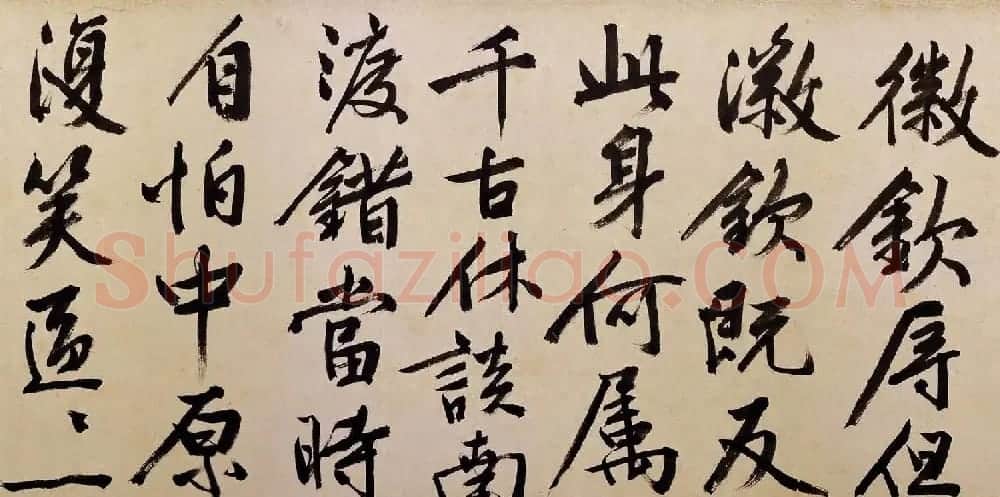 徽欽辱但
徽欽既反
此身何属
千古休談南
渡錯當時
自怕中原
復笑區〻一
Shufaziliao.COM